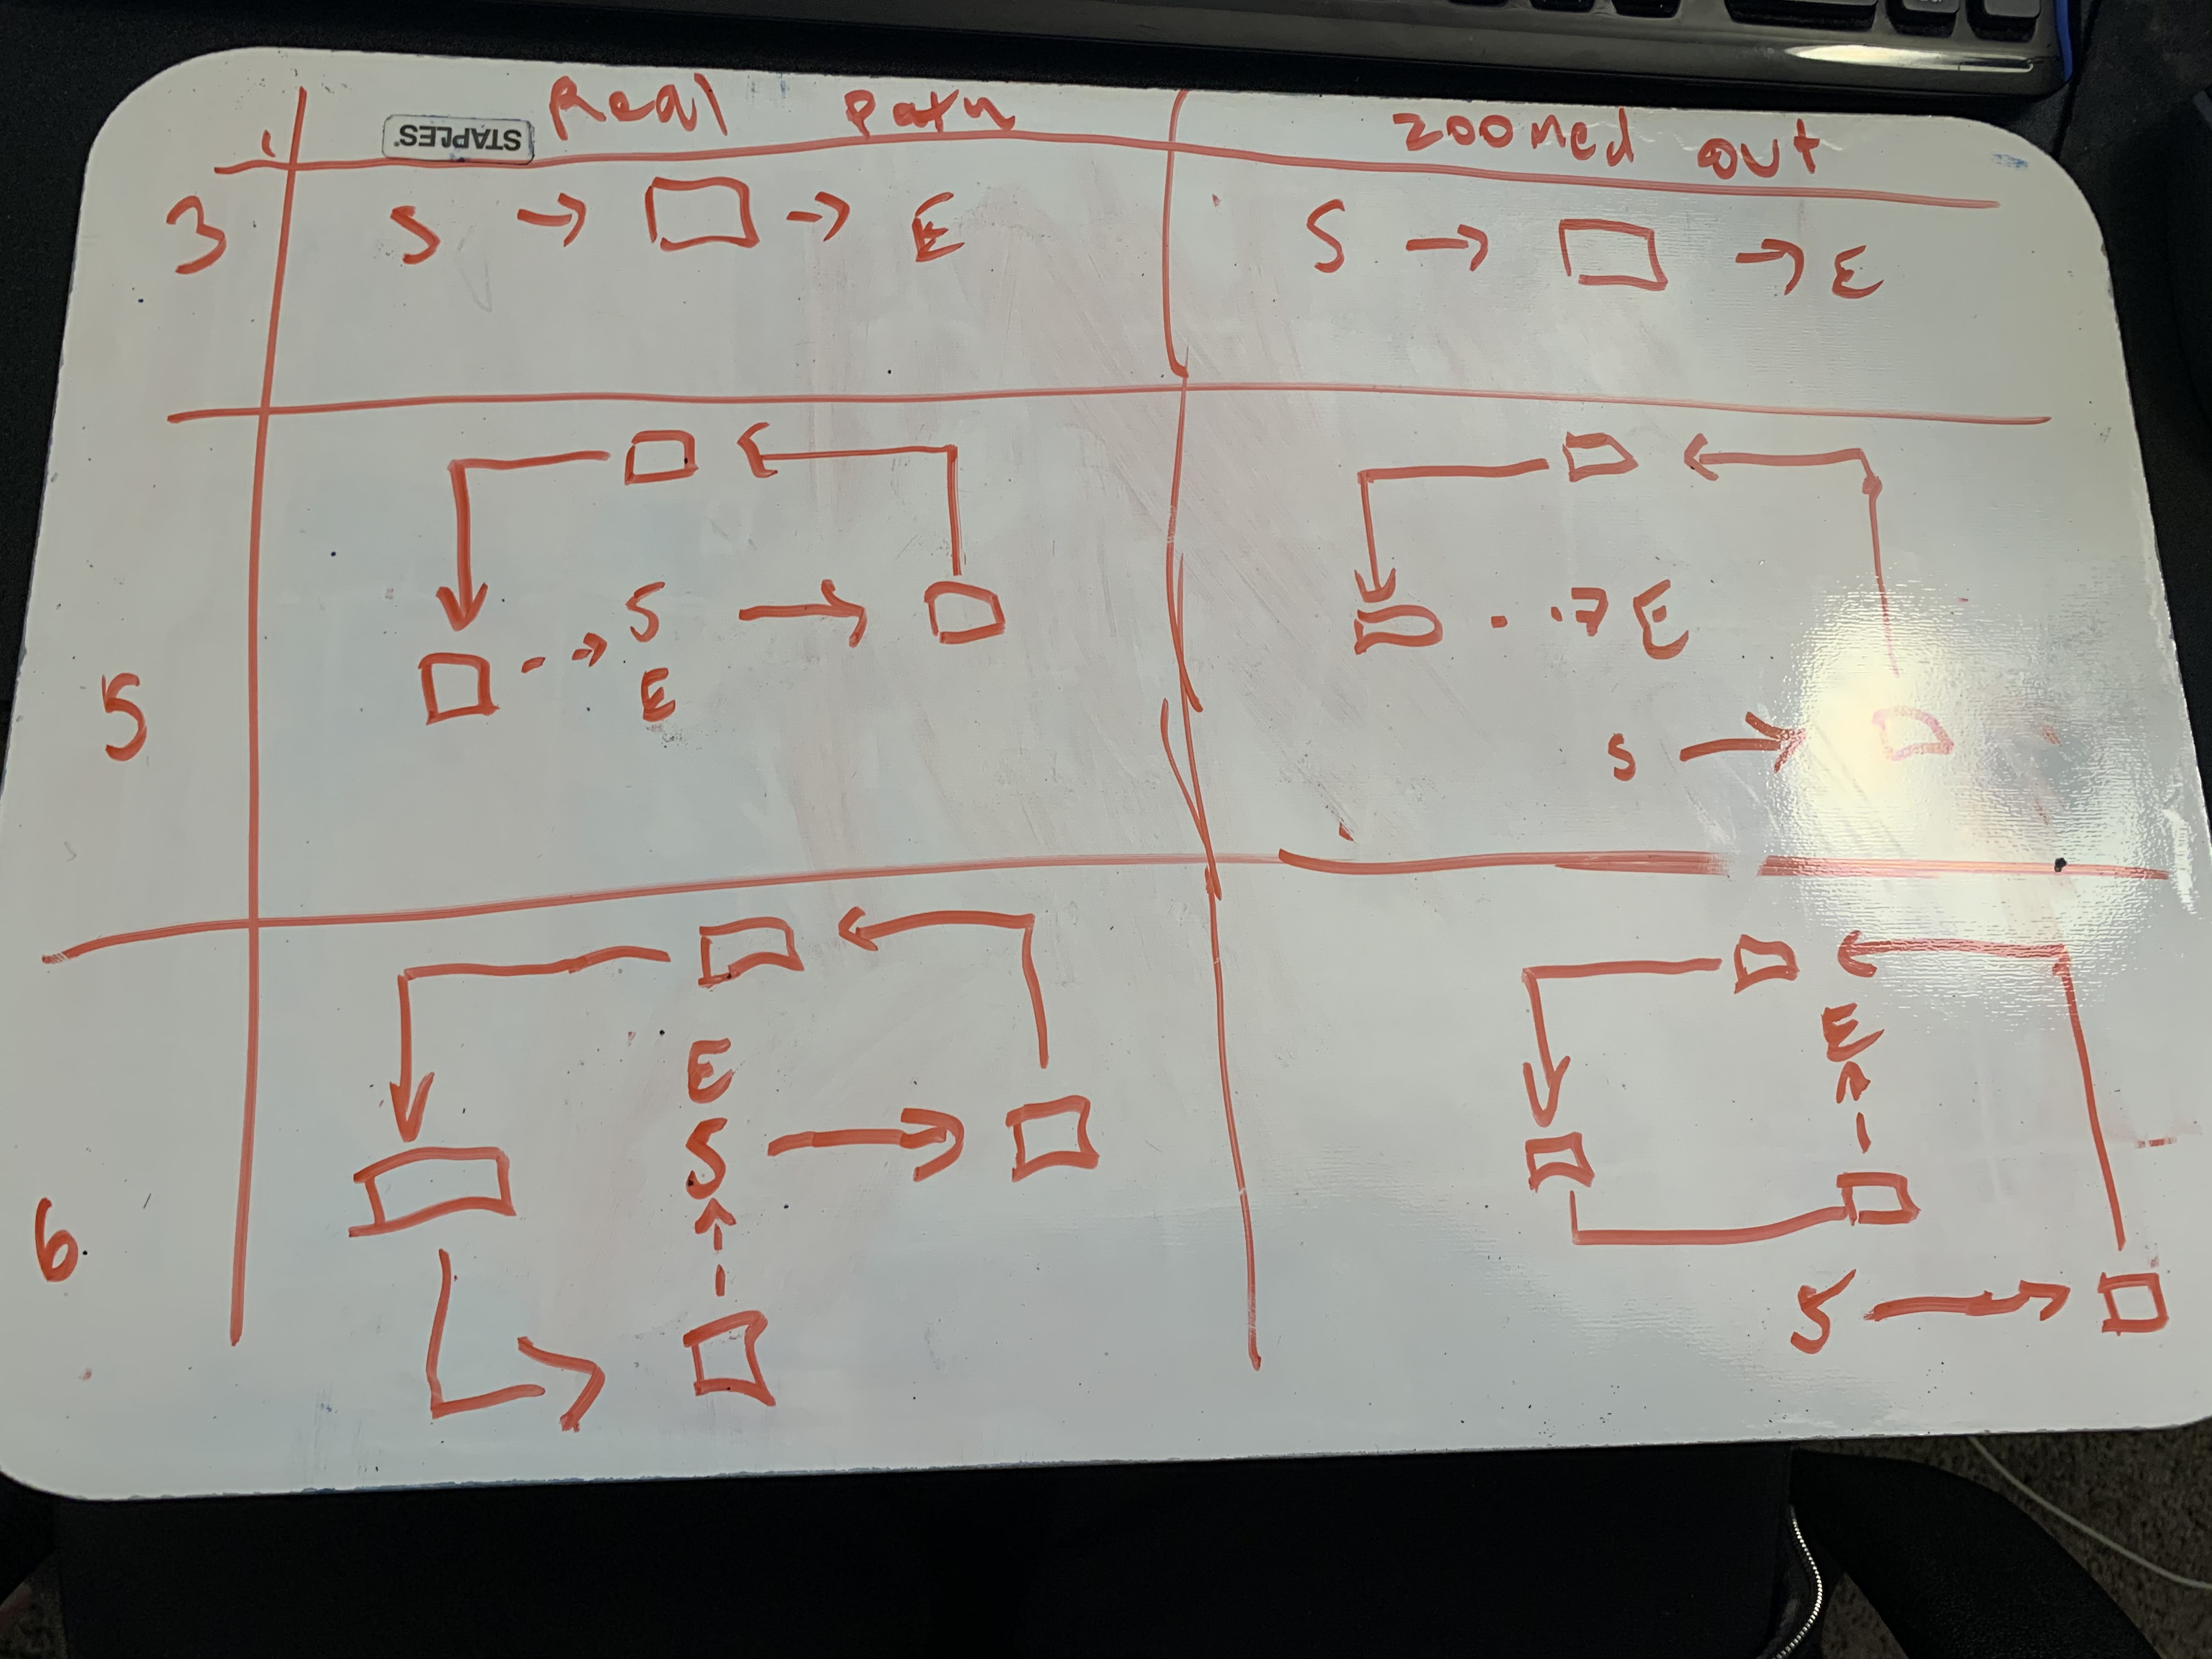 STAPLES
Real Path zoomed out
3 S → → E S → → E
5
S
E
E
S
6
E
S
E
S